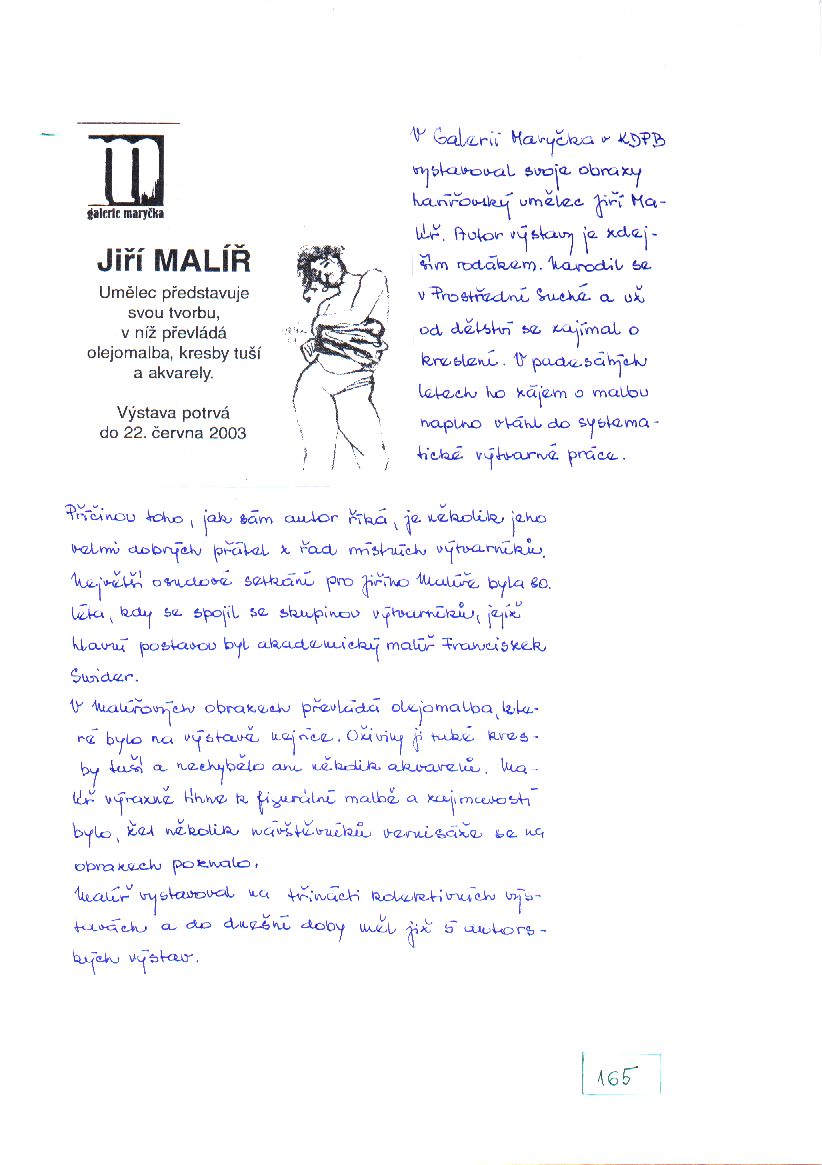 galerie maryčka
Jiří MALÍŘ
Umělec představuje
svou tvorbu,
v níž převládá
olejomalba, kresby tuší
a akvarely.
Výstava potrvá
do 22. června 2003
V Galerii Maryčka v KDPB
vystavoval svoje obrazy
havířovský umělec Jiří Ma-
líř. Autor výstavy je zdej-
ším rodákem. Narodil se
v Prostřední Suché a už
od dětství se zajímal o
kreslení. V padesátých
letech ho zájem o malbu
naplno vtáhl do systema-
tické výtvarné práce.
Příčinou toho, jak sám autor říká, je několik jeho
velmi dobrých přátel z řad místních výtvarníků.
Největší osudové setkání pro Jiřího Malíře byla 80.
léta, kdy se spojil se skupinou výtvarníků, jejíž
hlavní postavou byl akademický malíř Franciszek
Swider.
V Malířových obrazech převládá olejomalba, kte-
ré bylo na výstavě nejvíce. Oživily ji také kres-
by tuší a nechybělo ani několik akvarelů. Ma-
líř výrazně tíhne k figurální malbě a zajímavostí
bylo, že několik návštěvníků vernisáže se na
obrazech poznalo.
Malíř vystavoval na třinácti kolektivních výs-
tavách a do dnešní doby měl již 5 autors-
kých výstav.
165